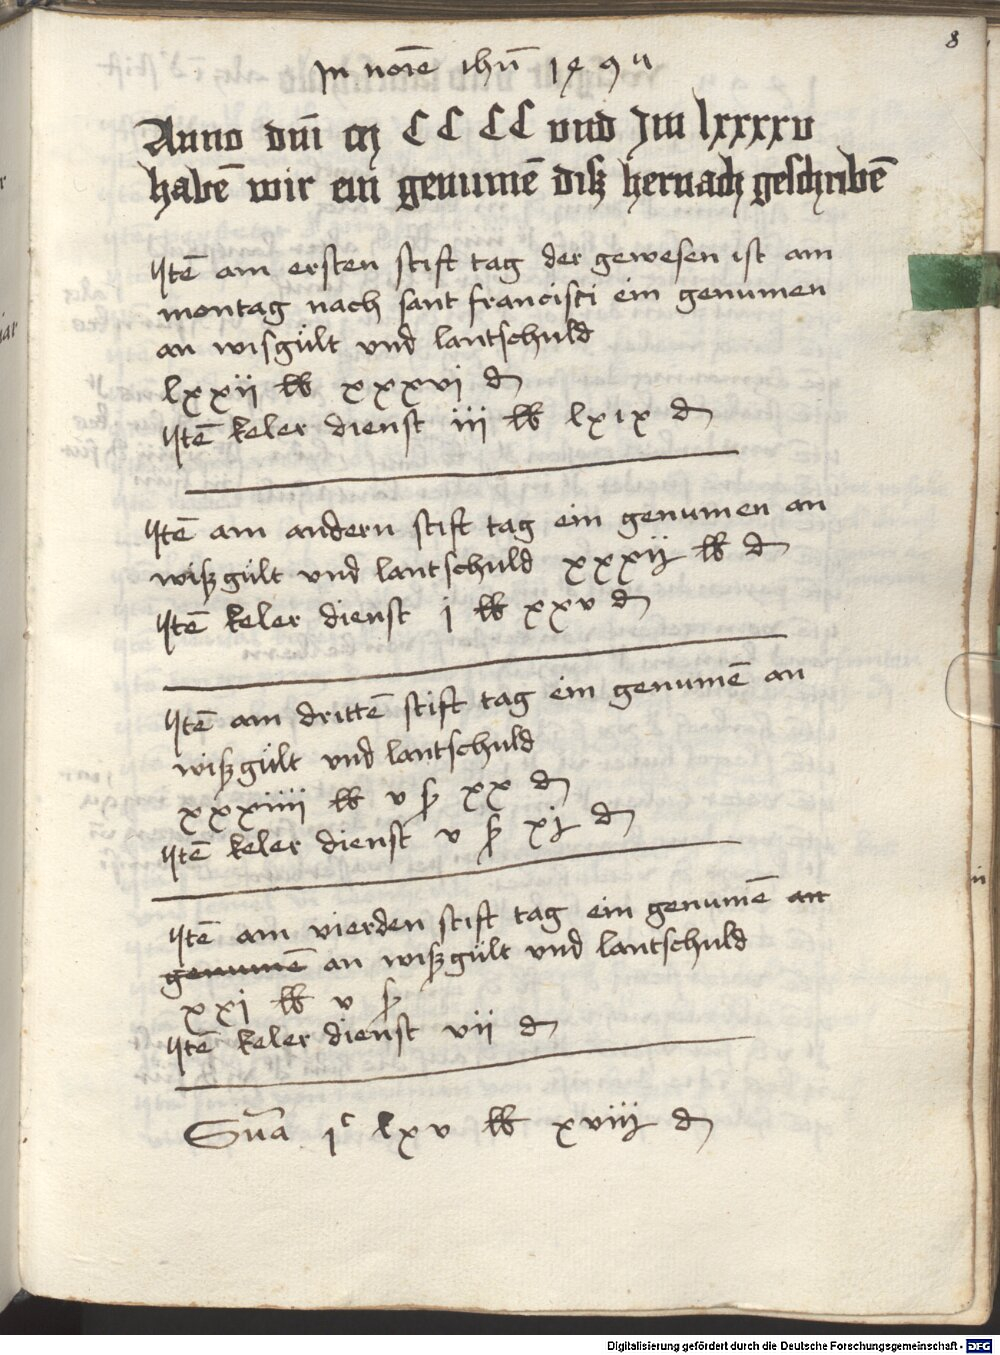 8
In noīe ihū 1494
Anno dm̄ m CCCC und Im lxxxxv
habē wir ein genumē disz hernach geschribē
Itē am ersten stift tag der gewesen ist am
montag nach sant francisci ein genumen
an wisgült und lantschuld
lxxii lb xxxvi d
Itē keler dienst iii lb lxix d
Itē am andern stift tag ein genumen an
wiszgült und lantschuld xxxii lb d
Itē keler dienst i lb xxv d
Itē am drittē stift tag ein genumē an
wiszgült und lantschuld
xxxiiii lb v ß xx d
Itē keler dienst v ß xj d
Itē am vierden stift tag ein genumē an
genumē an wiszgült und lantschuld
xxi lb v ß
Itē keler dienst vii d
Sūa iᶜ lxv lb xviii d
Digitalisierung gefördert durch die Deutsche Forschungsgemeinschaft - DFG